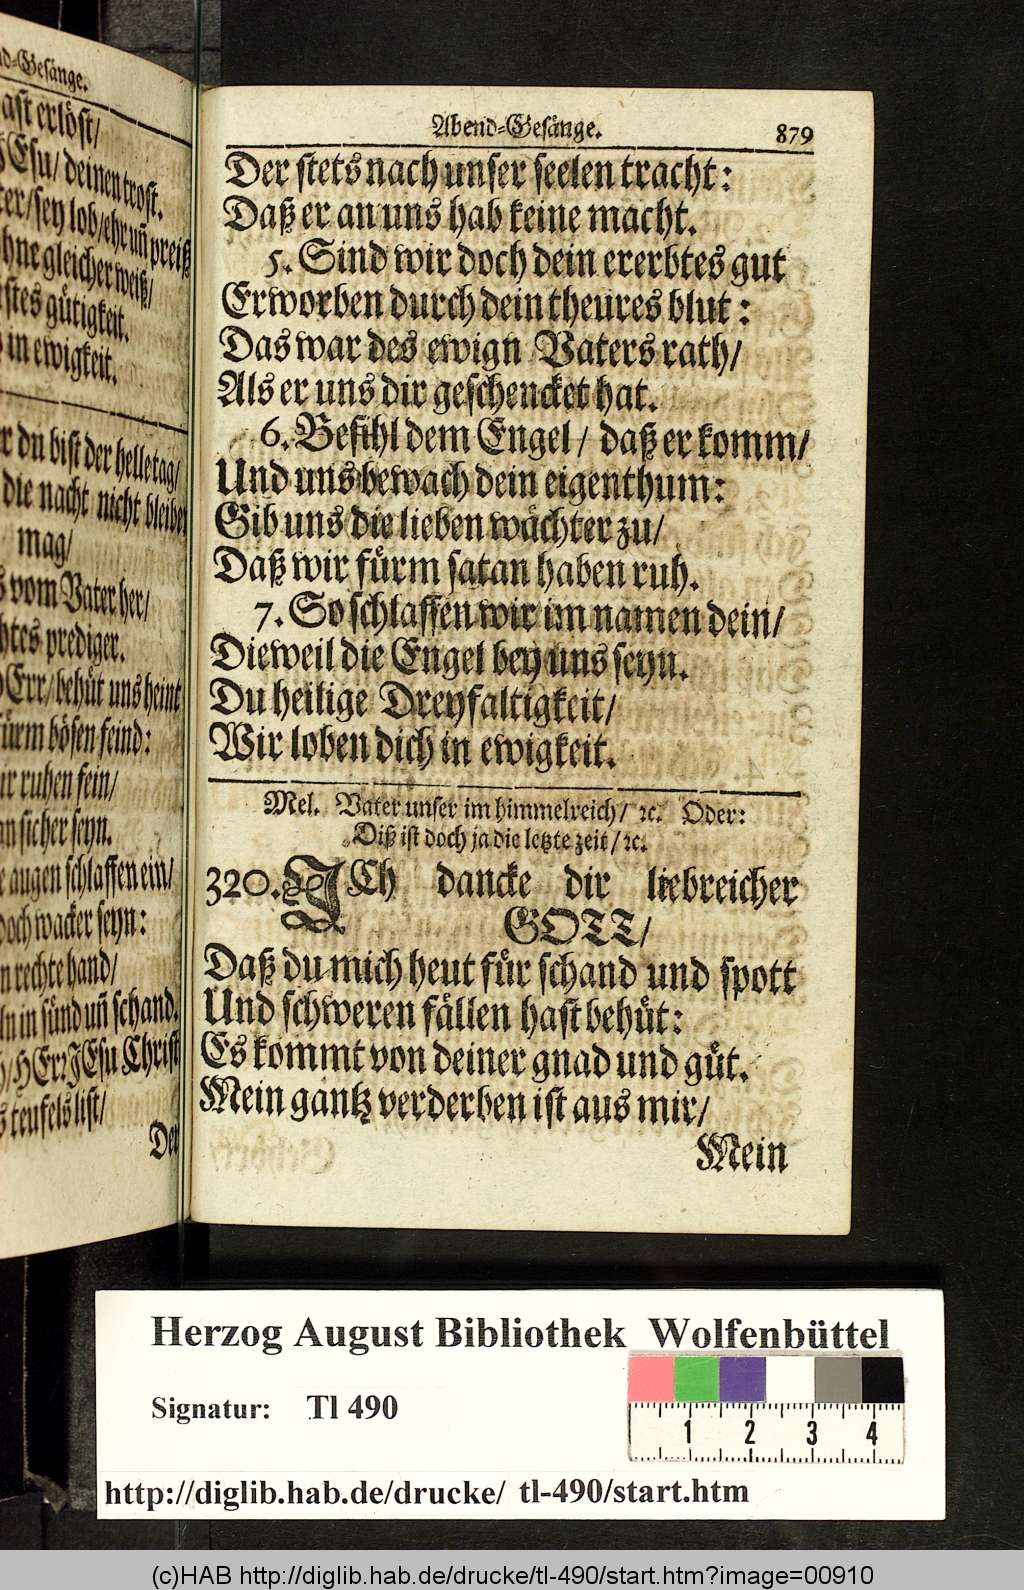 nd-Gesänge.
ast erlöst/
JEsu/ deinen trost.
ter/ sey lob/ ehr uñ preiß
hne gleicher weiß/
istes gütigkeit.
in ewigkeit.
r du bist der helle tag/
die nacht nicht bleiben
mag/
s vom Vater her/
htes prediger.
HErr/ behüt uns heint
fürm bösen feind:
ir ruhen fein/
an sicher seyn.
e augen schlaffen ein/
doch wacker seyn:
n rechte hand/
lln in sünd uñ schand.
HErr JEsu Christ
s teufels list/
Der
Abend-Gesänge. 879
Der stets nach unser seelen tracht:
Daß er an uns hab keine macht.
5. Sind wir doch dein ererbtes gut
Erworben durch dein theures blut:
Das war des ewign Vaters rath/
Als er uns dir geschencket hat.
6. Befihl dem Engel/ daß er komm/
Und uns bewach dein eigenthum:
Gib uns die lieben wächter zu/
Daß wir fürm satan haben ruh.
7. So schlaffen wir im namen dein/
Dieweil die Engel bey uns seyn.
Du heilige Dreyfaltigkeit/
Wir loben dich in ewigkeit.
Mel. Vater unser im himmelreich/ ꝛc. Oder:
Diß ist doch ja die letzte zeit/ ꝛc.
320. ICh dancke dir liebreicher
GOTT/
Daß du mich heut für schand und spott
Und schweren fällen hast behüt:
Es kommt von deiner gnad und güt.
Mein gantz verderben ist aus mir/
Mein
Herzog August Bibliothek Wolfenbüttel
Signatur: Tl 490
1 2 3 4
http://diglib.hab.de/drucke/ tl-490/start.htm
(c)HAB http://diglib.hab.de/drucke/tl-490/start.htm?image=00910